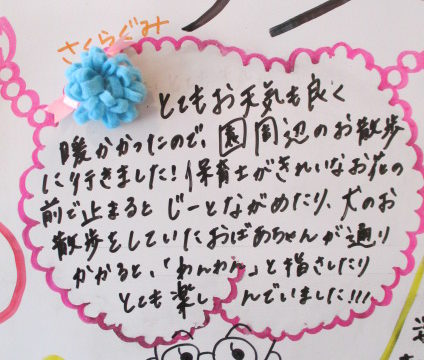 さくらぐみ
とてもお天気も良く
暖かかったので、園周辺のお散歩
に行きました!保育士がきれいなお花の
前で止まるとじーっとながめたり、犬のお
散歩をしていたおばあちゃんが通り
かかると、「わんわん」と指さしたり
とても楽しんでいました!!!